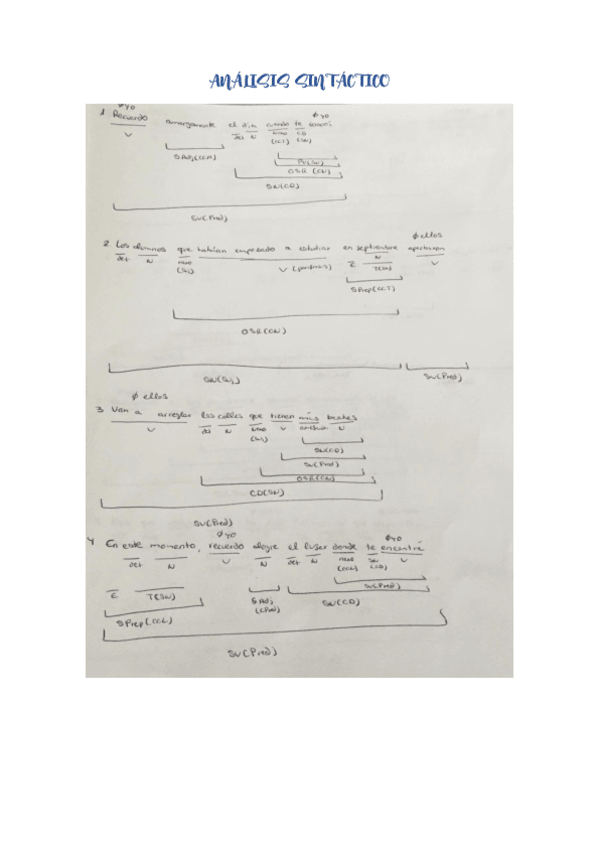 ANÁLISIS SINTÁCTICO
Ø yo Ø yo
1 Recuerdo amargamente el día cuando te conocí
V Det N nexo CD
(CCT) (SN)
SAdj(CCM) PV(SV)
OSR (CN)
SN(CD)
SV(Pred)
Ø ellos
2 Los alumnos que habían empezado a estudiar en septiembre aprobaron
Det N nexo V (perífrasis) E N V
(Suj) T(SN)
SPrep(CCT)
OSR(CN)
SN(Suj) SV(Pred)
Ø ellos
3 Van a arreglar las calles que tienen más baches
V det N nexo V N
(Suj)
SN(CD)
SV(Pred)
OSR(CN)
CD(SN)
SV(Pred)
Ø yo Ø yo
4 En este momento, recuerdo alegre el lugar donde te encontré
Det N V N det N nexo SN V
(CCL) (CD)
SV(Pred)
E T(SN) SAdj SN(CD)
SPrep(CCL) (CPred)
SV(Pred)